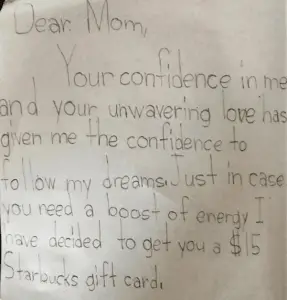 Dear Mom,
Your confidence in me
and your unwavering love has
given me the confidence to
follow my dreams. Just in case
you need a boost of energy I
have decided to get you a $15
Starbucks gift card.